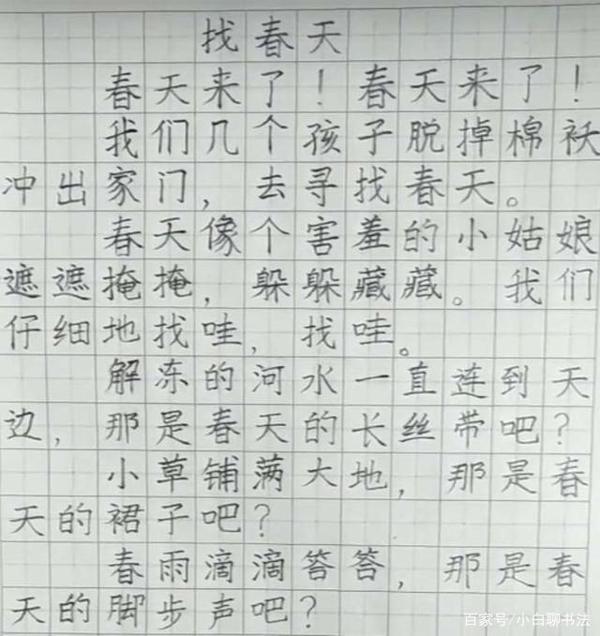 找春天
春天来了！春天来了！
我们几个孩子脱掉棉袄
冲出家门，去寻找春天。
春天像个害羞的小姑娘
遮遮掩掩，躲躲藏藏。我们
仔细地找哇，找哇。
解冻的河水一直连到天
边，那是春天的长丝带吧？
小草铺满大地，那是春
天的裙子吧？
春雨滴滴答答，那是春
天的脚步声吧？
百家号/小白聊书法